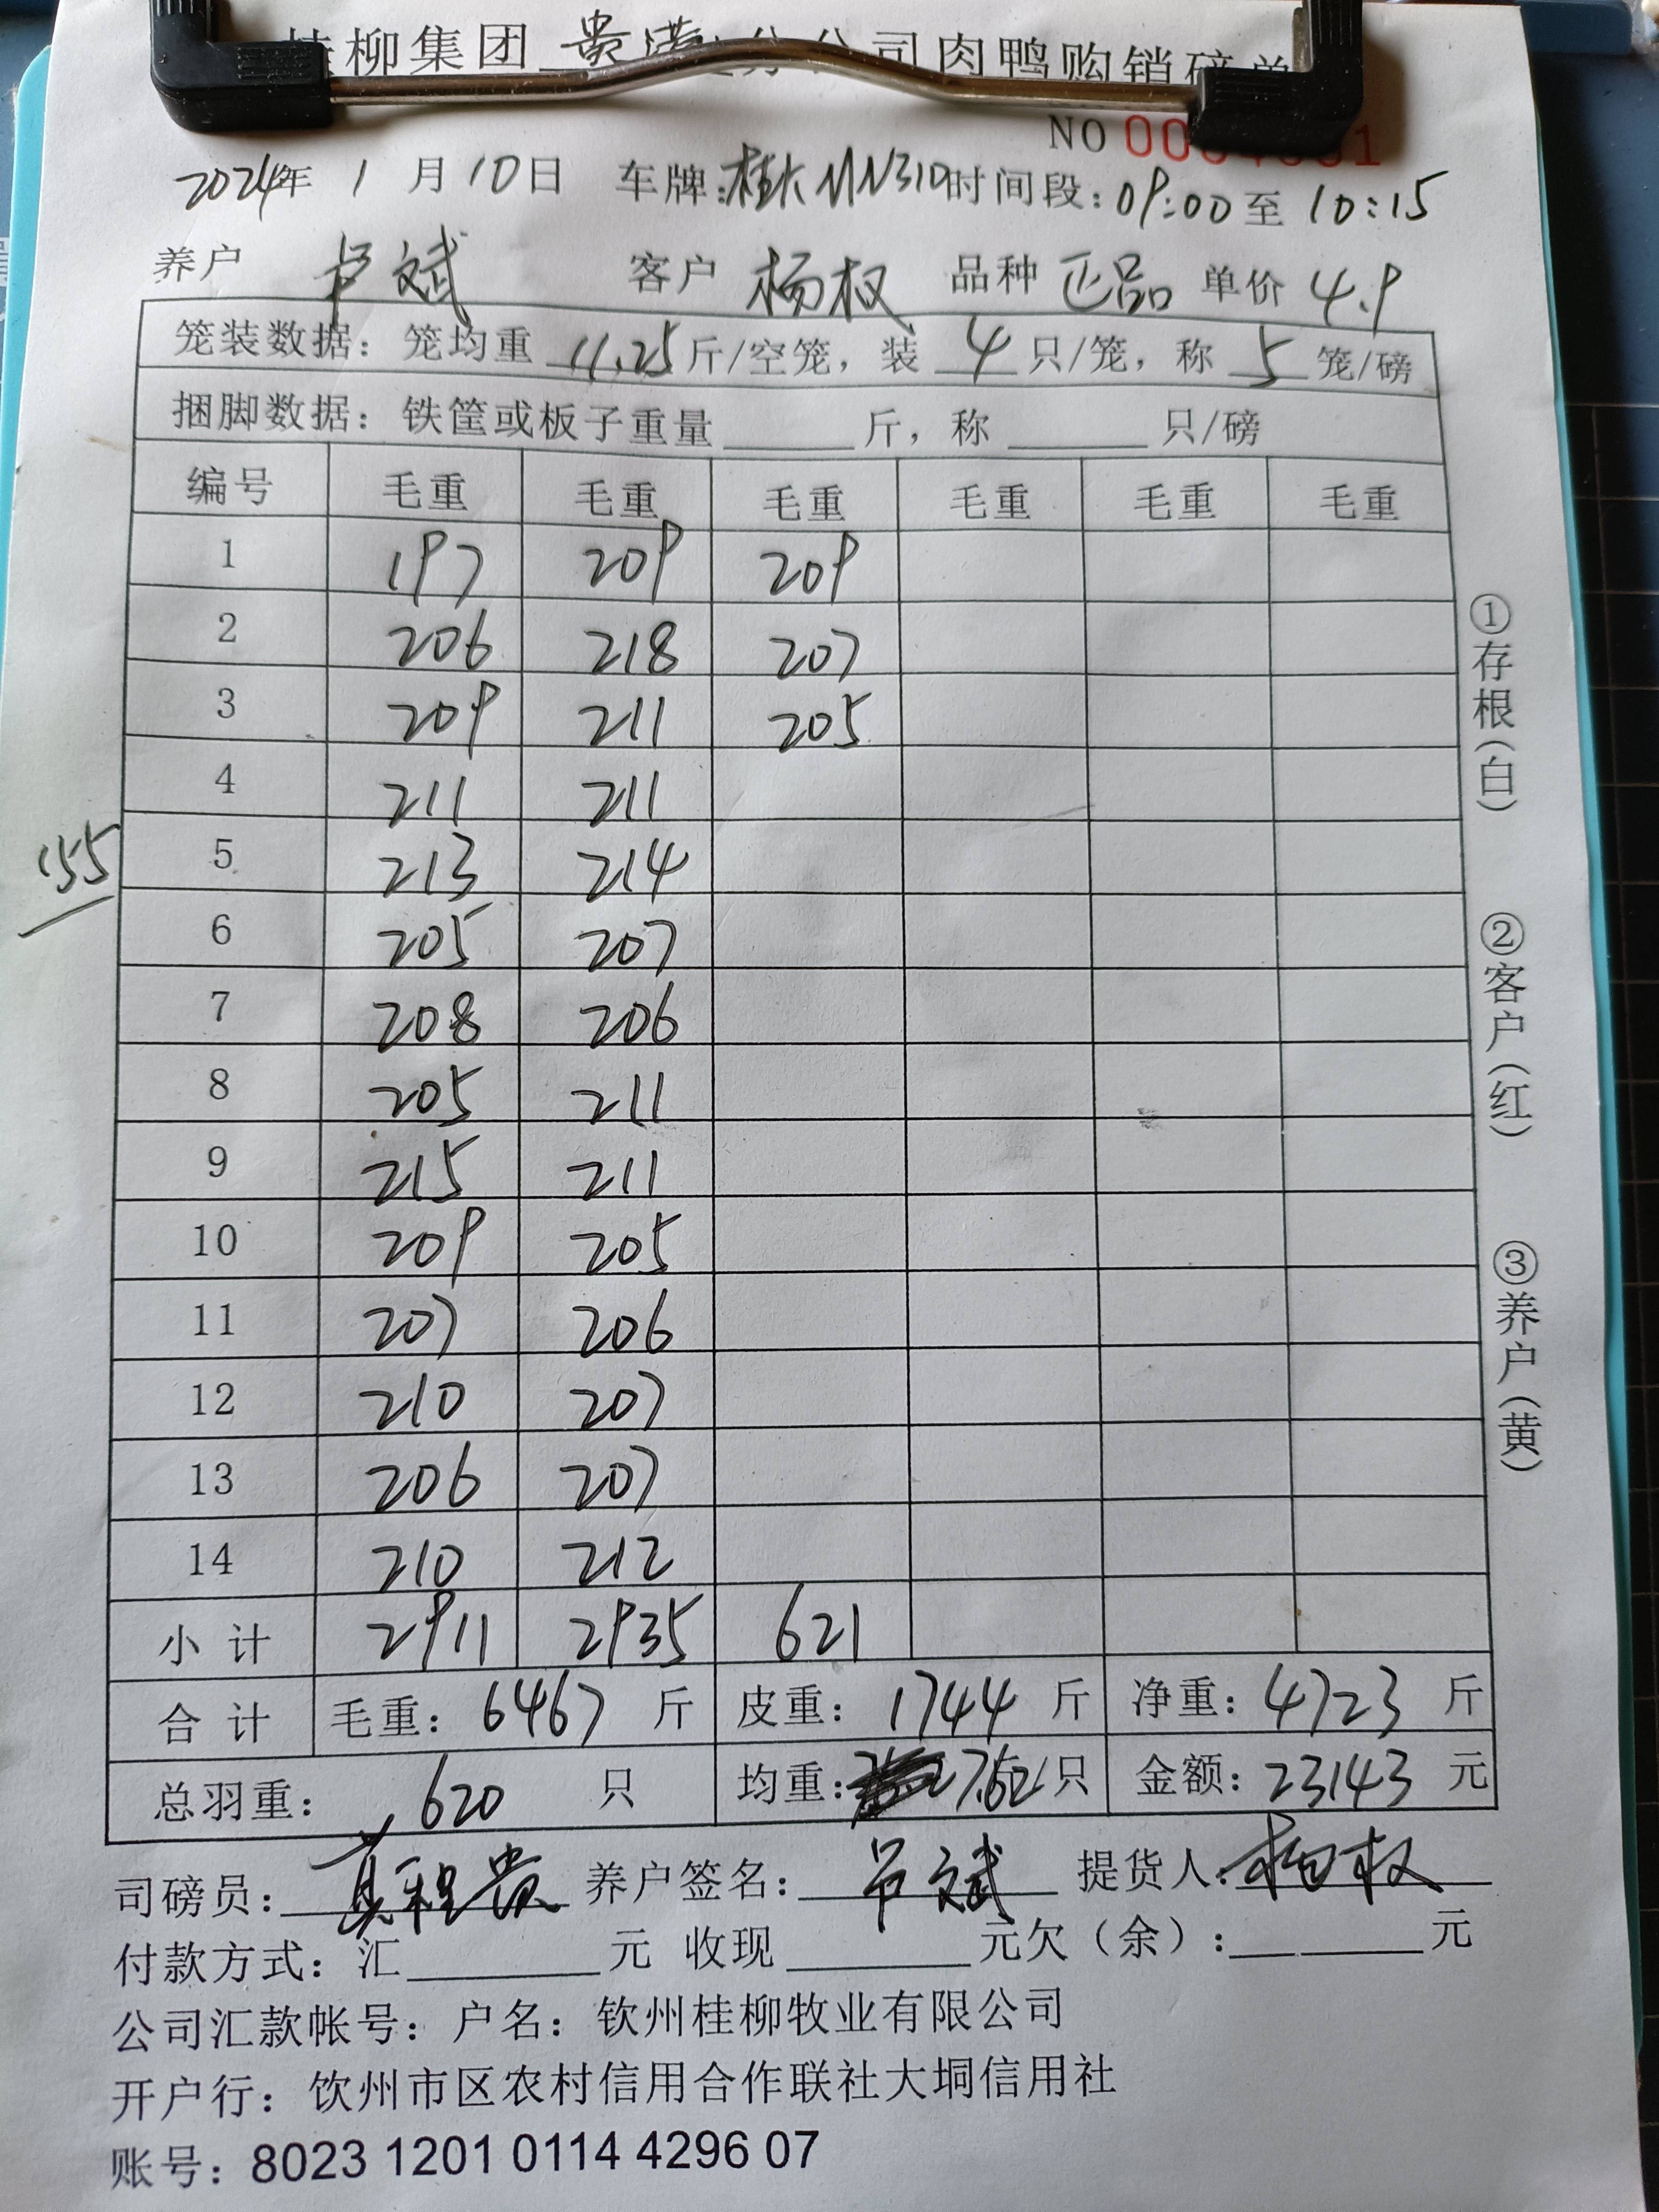 桂柳集团 贵港 分公司肉鸭购销磅单
NO
2024年 1 月 10日 车牌: 时间段:09:00至 10:15
养户 卢斌 客户 杨权 品种 正品 单价 4.9
笼装数据: 笼均重 11.25 斤/空笼, 装 4 只/笼, 称 5 笼/磅
捆脚数据: 铁筐或板子重量 ____ 斤, 称 ____ 只/磅
编号 毛重 毛重 毛重 毛重 毛重 毛重
1 197 209 209
2 206 218 207
3 209 211 205
4 211 211
155
5 213 214
6 205 207
7 208 206
8 205 211
9 215 211
10 209 205
11 207 206
12 210 207
13 206 207
14 210 212
小 计 2911 2935 621
合 计 毛重: 6467 斤 皮重: 1744 斤 净重: 4723 斤
总羽重: 620 只 均重: 7.62 只 金额: 23143 元
司磅员: 养户签名: 卢斌 提货人: 杨权
付款方式: 汇____元 收现____元欠(余):____元
公司汇款帐号: 户名: 钦州桂柳牧业有限公司
开户行: 饮州市区农村信用合作联社大垌信用社
账号: 8023 1201 0114 4296 07
①存根(白)
②客户(红)
③养户(黄)